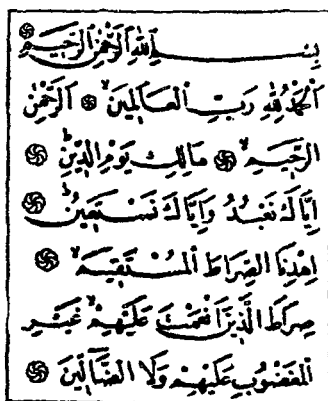 بِسْمِ اللّٰهِ الرَّحْمٰنِ الرَّحِيْمِ ۝
اَلْحَمْدُ لِلّٰهِ رَبِّ الْعَالَمِيْنَۙ ۝ اَلرَّحْمٰنِ
الرَّحِيْمِۙ ۝ مَالِكِ يَوْمِ الدِّيْنِؕ ۝
اِيَّاكَ نَعْبُدُ وَاِيَّاكَ نَسْتَعِيْنُؕ ۝
اِهْدِنَا الصِّرَاطَ الْمُسْتَقِيْمَۙ ۝
صِرَاطَ الَّذِيْنَ اَنْعَمْتَ عَلَيْهِمْۙ غَيْرِ
الْمَغْضُوْبِ عَلَيْهِمْ وَلَا الضَّآلِّيْنَ ۝